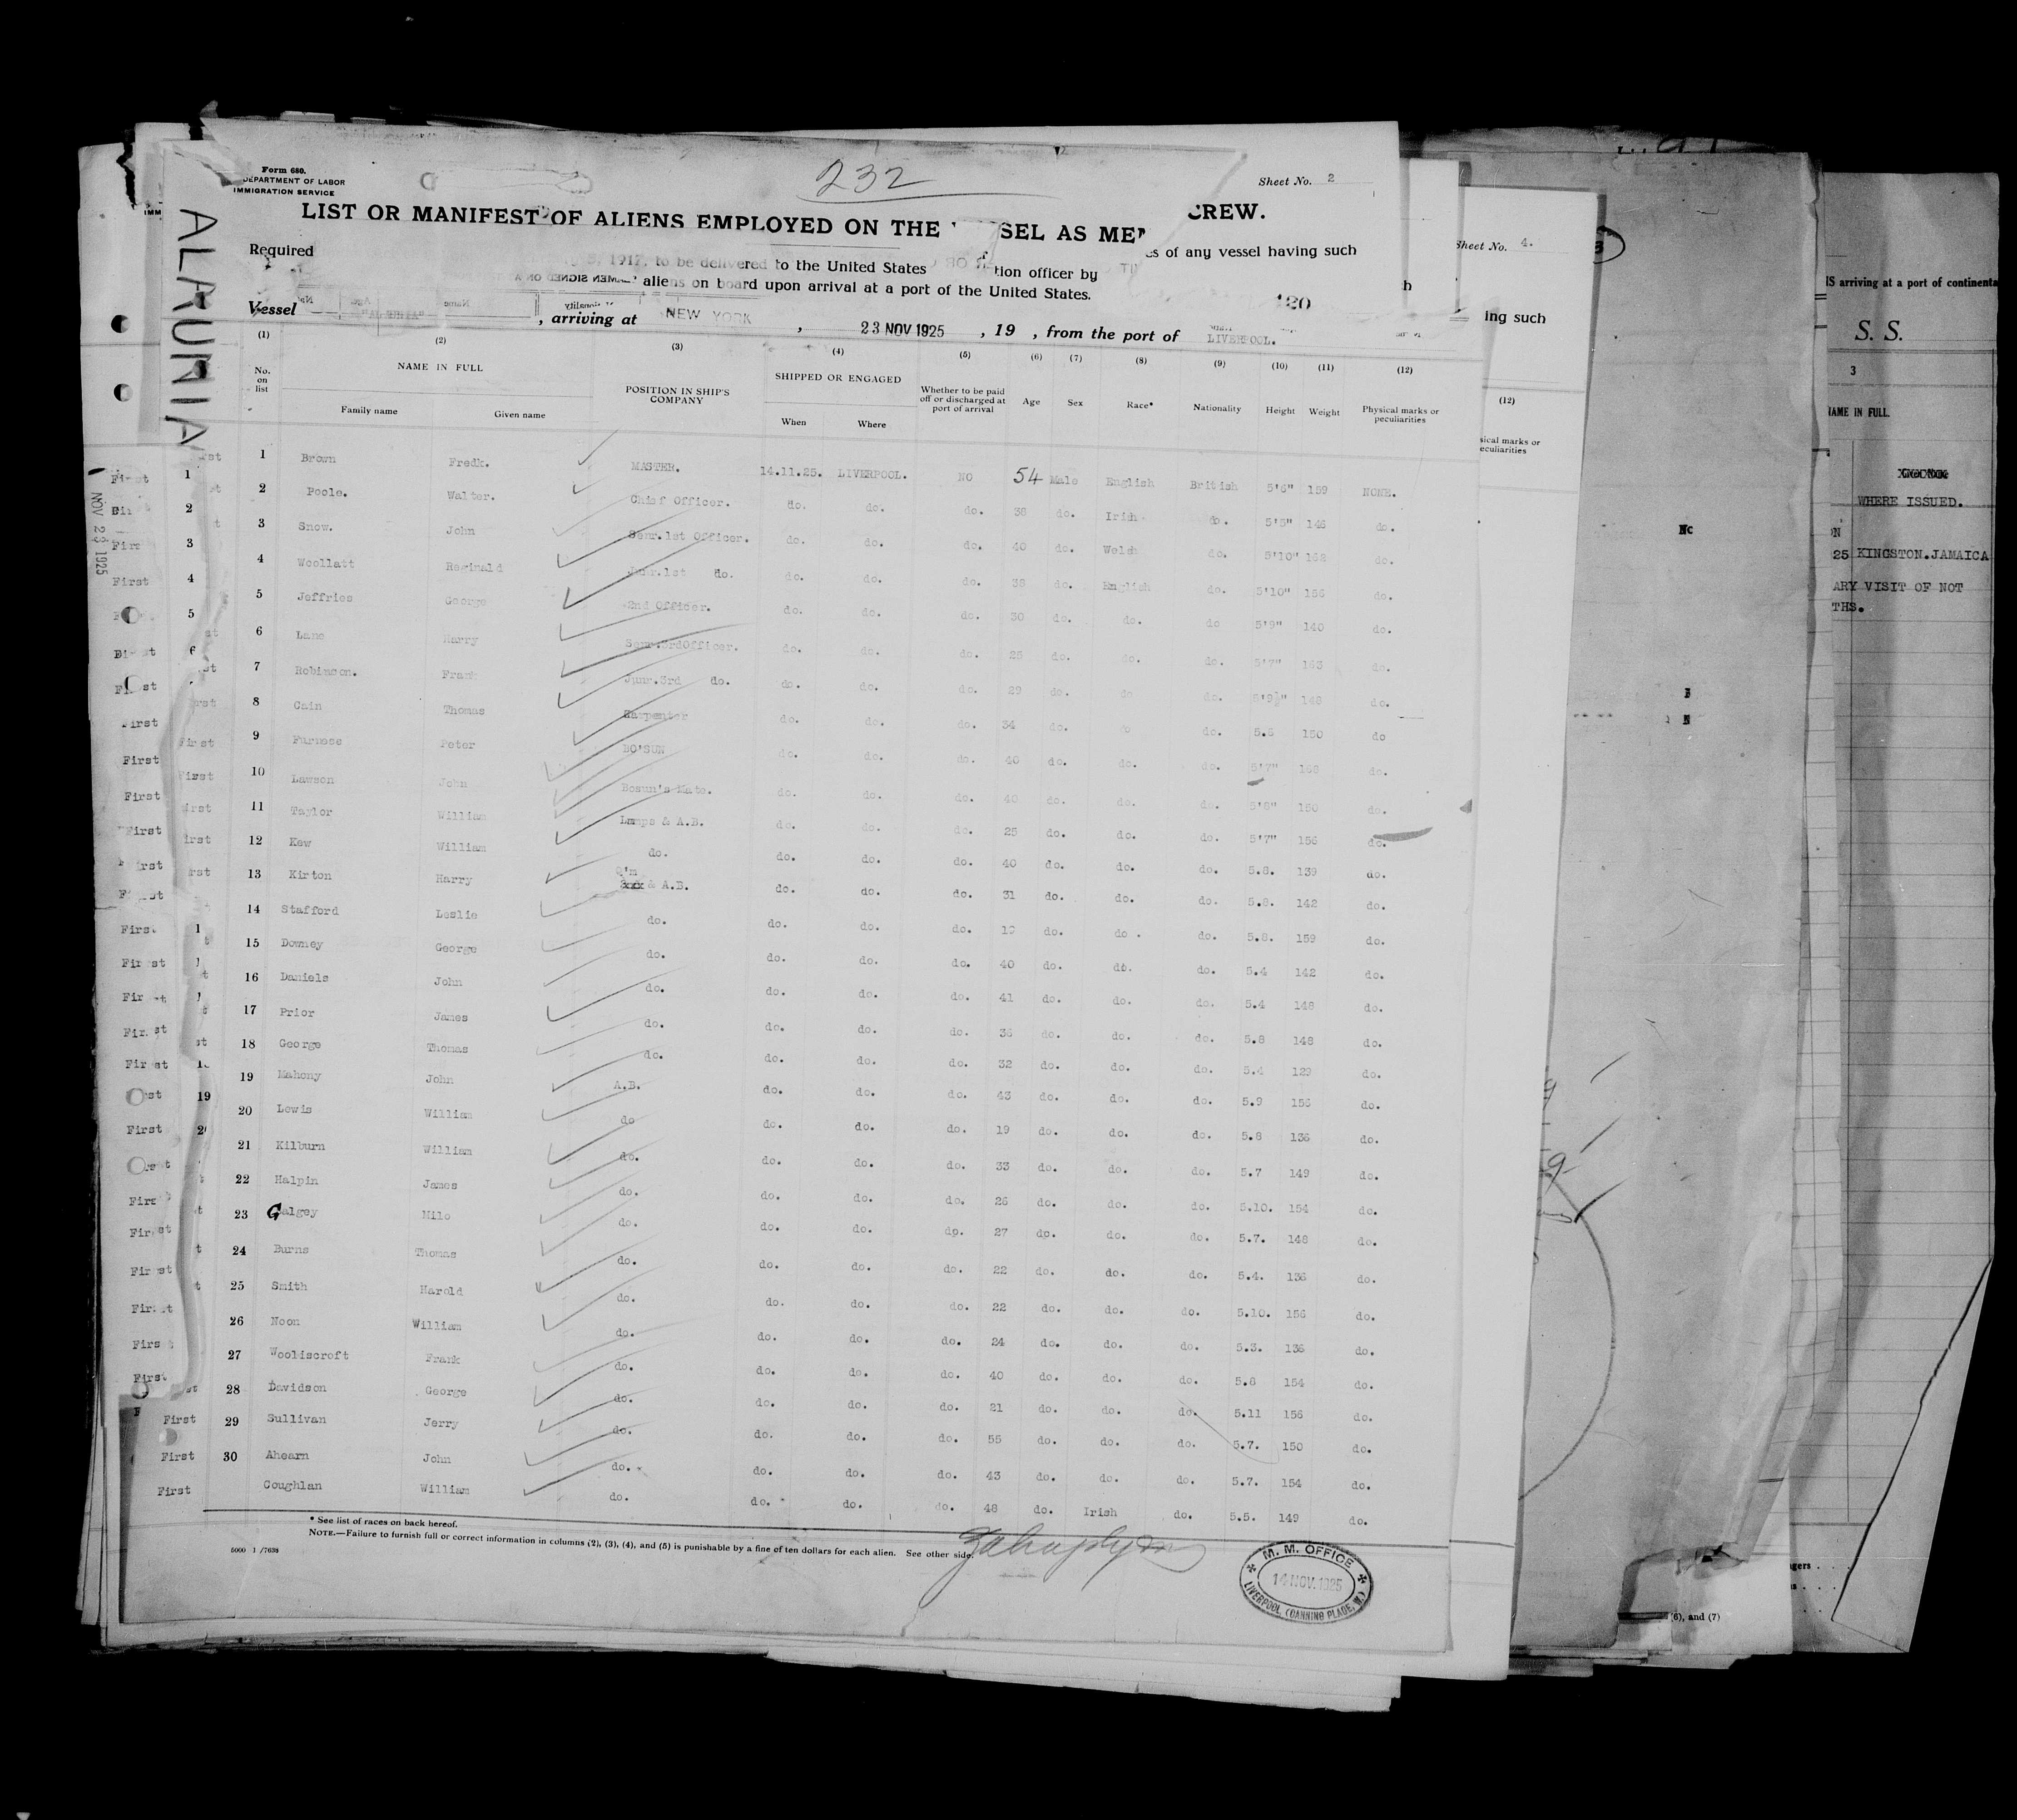 Form 680.
DEPARTMENT OF LABOR
IMMIGRATION SERVICE
232
Sheet No. 2
LIST OR MANIFEST OF ALIENS EMPLOYED ON THE SEL AS MEM CREW.
Required 1917, to be delivered to the United States tion officer by es of any vessel having such
aliens on board upon arrival at a port of the United States.
Vessel , arriving at NEW YORK , 23 NOV 1925 , 19 , from the port of LIVERPOOL.
ALAUNIA
NOV 23 1925
(1) (2) (3) (4) (5) (6) (7) (8) (9) (10) (11) (12)
No. on list NAME IN FULL Family name Given name POSITION IN SHIP'S COMPANY SHIPPED OR ENGAGED When Where Whether to be paid off or discharged at port of arrival Age Sex Race* Nationality Height Weight Physical marks or peculiarities
1 Brown Fredk. MASTER. 14.11.25. LIVERPOOL. NO 54 Male English British 5'6" 159 NONE.
2 Poole. Walter. Chief Officer. do. do. do. 38 do. Irish do. 5'5" 146 do.
3 Snow. John Senr.1st Officer. do. do. do. 40 do. Welsh do. 5'10" 162 do.
4 Woollatt Reginald Junr.1st do. do. do. do. 38 do. English do. 5'10" 156 do.
5 Jeffries George 2nd Officer. do. do. do. 30 do. do. do 5'9" 140 do.
6 Lane Harry Senr.3rdOfficer. do. do. do. 25 do. do. do. 5'7" 163 do.
7 Robinson. Frank Junr.3rd do. do. do. do. 29 do. do do. 5'9½" 148 do.
8 Cain Thomas Carpenter do. do. do. 34 do. do do. 5.5 150 do
9 Furness Peter BO'SUN do. do. do. 40 do. do. do. 5'7" 168 do.
10 Lawson John Bosun's Mate. do. do. do. 40 do. do. do. 5'8" 150 do.
11 Taylor William Lamps & A.B. do. do. do. 25 do. do. do. 5'7" 156 do.
12 Kew William do. do. do. do. 40 do. do. do. 5.8. 139 do.
13 Kirton Harry Q'm & A.B. do. do. do. 31 do. do. do. 5.8. 142 do.
14 Stafford Leslie do. do. do. do. 19 do. do. do. 5.8. 159 do.
15 Downey George do. do. do. do. 40 do. do. do. 5.4 142 do.
16 Daniels John do. do. do. do. 41 do. do. do. 5.4 148 do.
17 Prior James do. do. do. do. 36 do. do. do. 5.8 148 do.
18 George Thomas do. do. do. do. 32 do. do. do. 5.4 129 do.
19 Mahony John A.B. do. do. do. 43 do. do. do. 5.9 156 do.
20 Lewis William do do. do. do. 19 do. do. do. 5.8 136 do.
21 Kilburn William do. do. do. do. 33 do. do. do. 5.7 149 do.
22 Halpin James do. do. do. do. 26 do. do. do. 5.10. 154 do.
23 Galgey Milo do. do. do. do. 27 do. do. do. 5.7. 148 do.
24 Burns Thomas do. do. do. do. 22 do. do. do. 5.4. 136 do.
25 Smith Harold do. do. do. do. 22 do. do. do. 5.10. 156 do.
26 Noon William do. do. do. do. 24 do. do. do. 5.3. 136 do.
27 Wooliscroft Frank do. do. do. do. 40 do. do. do. 5.8 154 do.
28 Davidson George do. do. do. do. 21 do. do. do. 5.11 156 do.
29 Sullivan Jerry do. do. do. do. 55 do. do. do. 5.7. 150 do.
30 Ahearn John do. do. do. do. 43 do. do. do. 5.7. 154 do.
Coughlan William do. do. do. do. 48 do. Irish do. 5.5. 149 do.
* See list of races on back hereof.
NOTE.—Failure to furnish full or correct information in columns (2), (3), (4), and (5) is punishable by a fine of ten dollars for each alien. See other side.
5000 1 /7638
M. M. OFFICE
14 NOV. 1925
LIVERPOOL, (CANNING PLACE, W.)
Sheet No. 4.
ing such
(12)
sical marks or
eculiarities
IS arriving at a port of continenta
S. S.
3
NAME IN FULL.
WHERE ISSUED.
25 KINGSTON.JAMAICA
ARY VISIT OF NOT
THS.
(6), and (7)